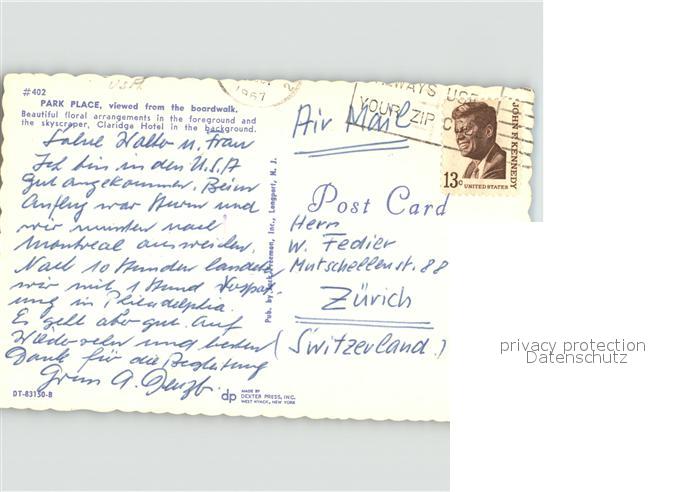 USA
#402
PARK PLACE, viewed from the boardwalk.
Beautiful floral arrangements in the foreground and
the skyscraper, Claridge Hotel in the background.
1967
ALWAYS USE
YOUR ZIP C
JOHN F. KENNEDY
13c
UNITED STATES
Air Mail
u. Frau
Ich bin in den U.S.A
gut angekommen. Beim
Anflug war Sturm und
wir mussten nach
Montreal ausweichen.
Nach 10 Stunden landeten
wir mit 1 Stund Verspät-
ung in Philadelphia.
Es geht aber gut. Auf
Wiedersehn und besten
Dank für die Begleitung
Gruss A.
Pub. by Jack Freeman, Inc., Longport, N. J.
Post Card
Herrn
W. Fedier
Mutschellenst. 88
Zürich
(Switzerland.)
DT-83150-B
dp
MADE BY
DEXTER PRESS, INC.
WEST NYACK, NEW YORK
privacy protection
Datenschutz